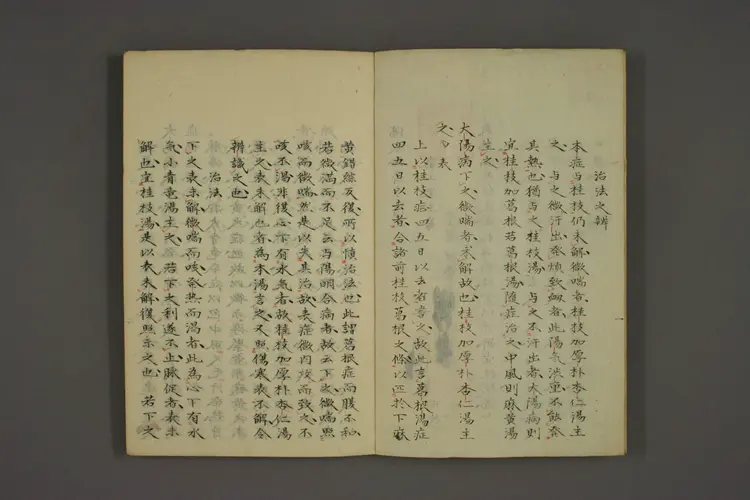 治法之辨
本症与桂枝仍未解微喘者桂枝加厚朴杏仁湯主
之与之微汗出発煩致衂者此陽気渋重不能発
其熱也猶与之桂枝湯与之不汗出者太陽病則
宜桂枝加葛根若葛根湯随症治之中風則麻黄湯
主之
太陽病下之微喘者未解故也桂枝加厚朴杏仁湯主
之表
上以桂枝症四五日以去者言之故此言葛根湯症
四五日以去者合諸前桂枝葛根之條以匹於下麻
黄錯綜反復所以慎治法也此謂葛根症而膜不和
若微満而不足去与陽明合病者故云下之微喘照
咳而微喘然是以失其治故表症微内攻而致之不
咳不渇非復心下有水気者故桂枝加厚朴杏仁湯
主之表未解也者為本湯言之又照傷寒表不解令
辨識之也
治法
下之表未解微喘而咳発熱而渇者此為心下有水
気小青竜湯主之若下之利遂不止脉促者表未
解也宜桂枝湯是以表未解復照系之也若下之